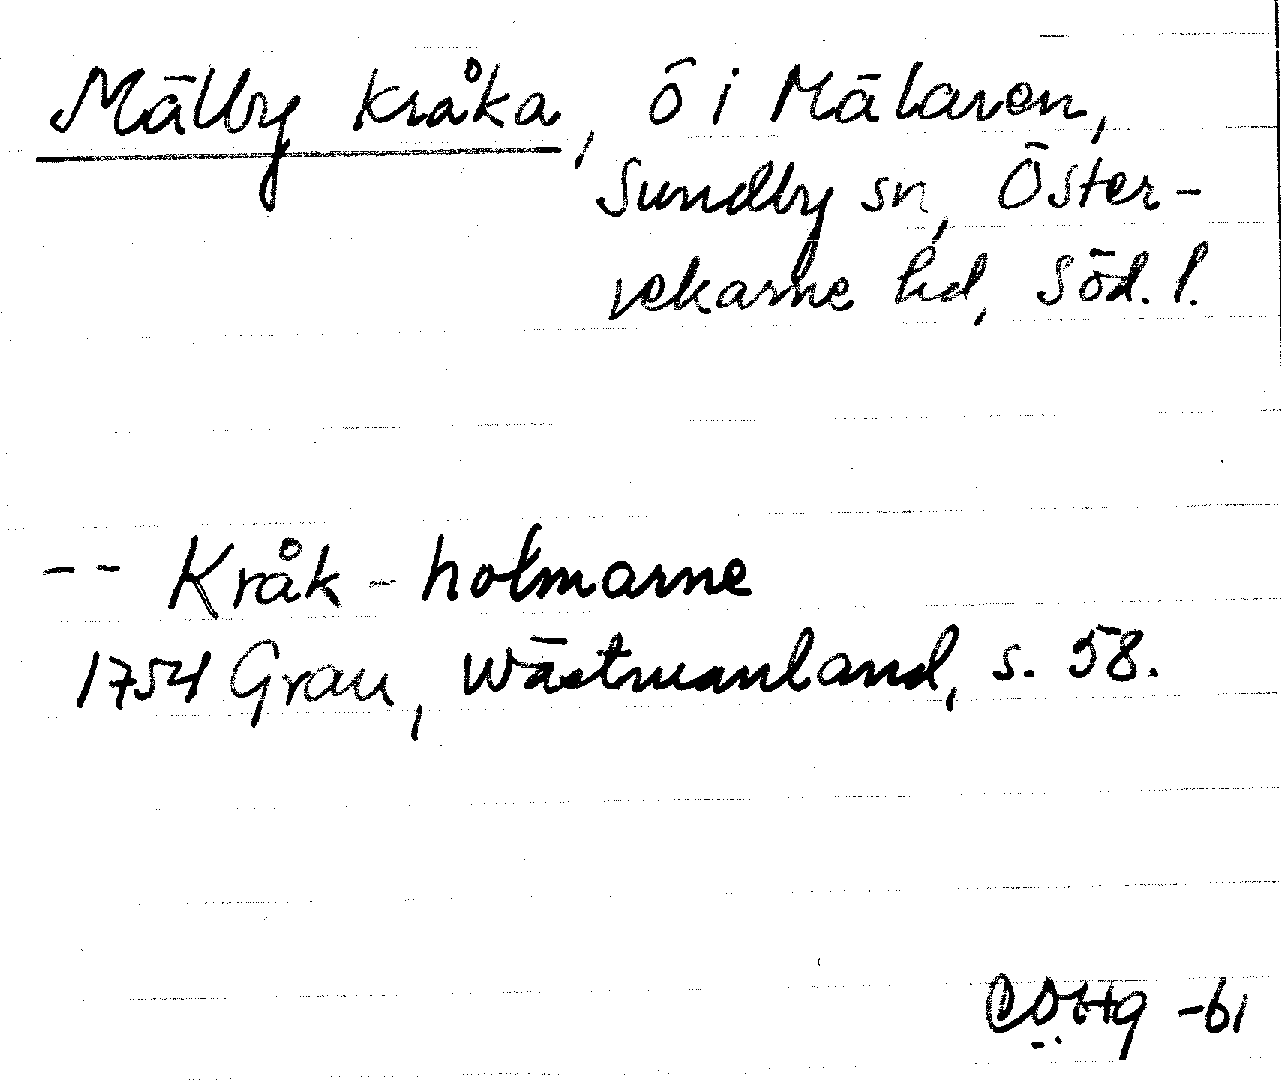 Mälby kråka, ö i Mälaren,
Sundby sn, Öster-
rekarne hd, Söd. l.
-- Kråk-holmarne
1754 Grau, Wästmanland, s. 58.
-61